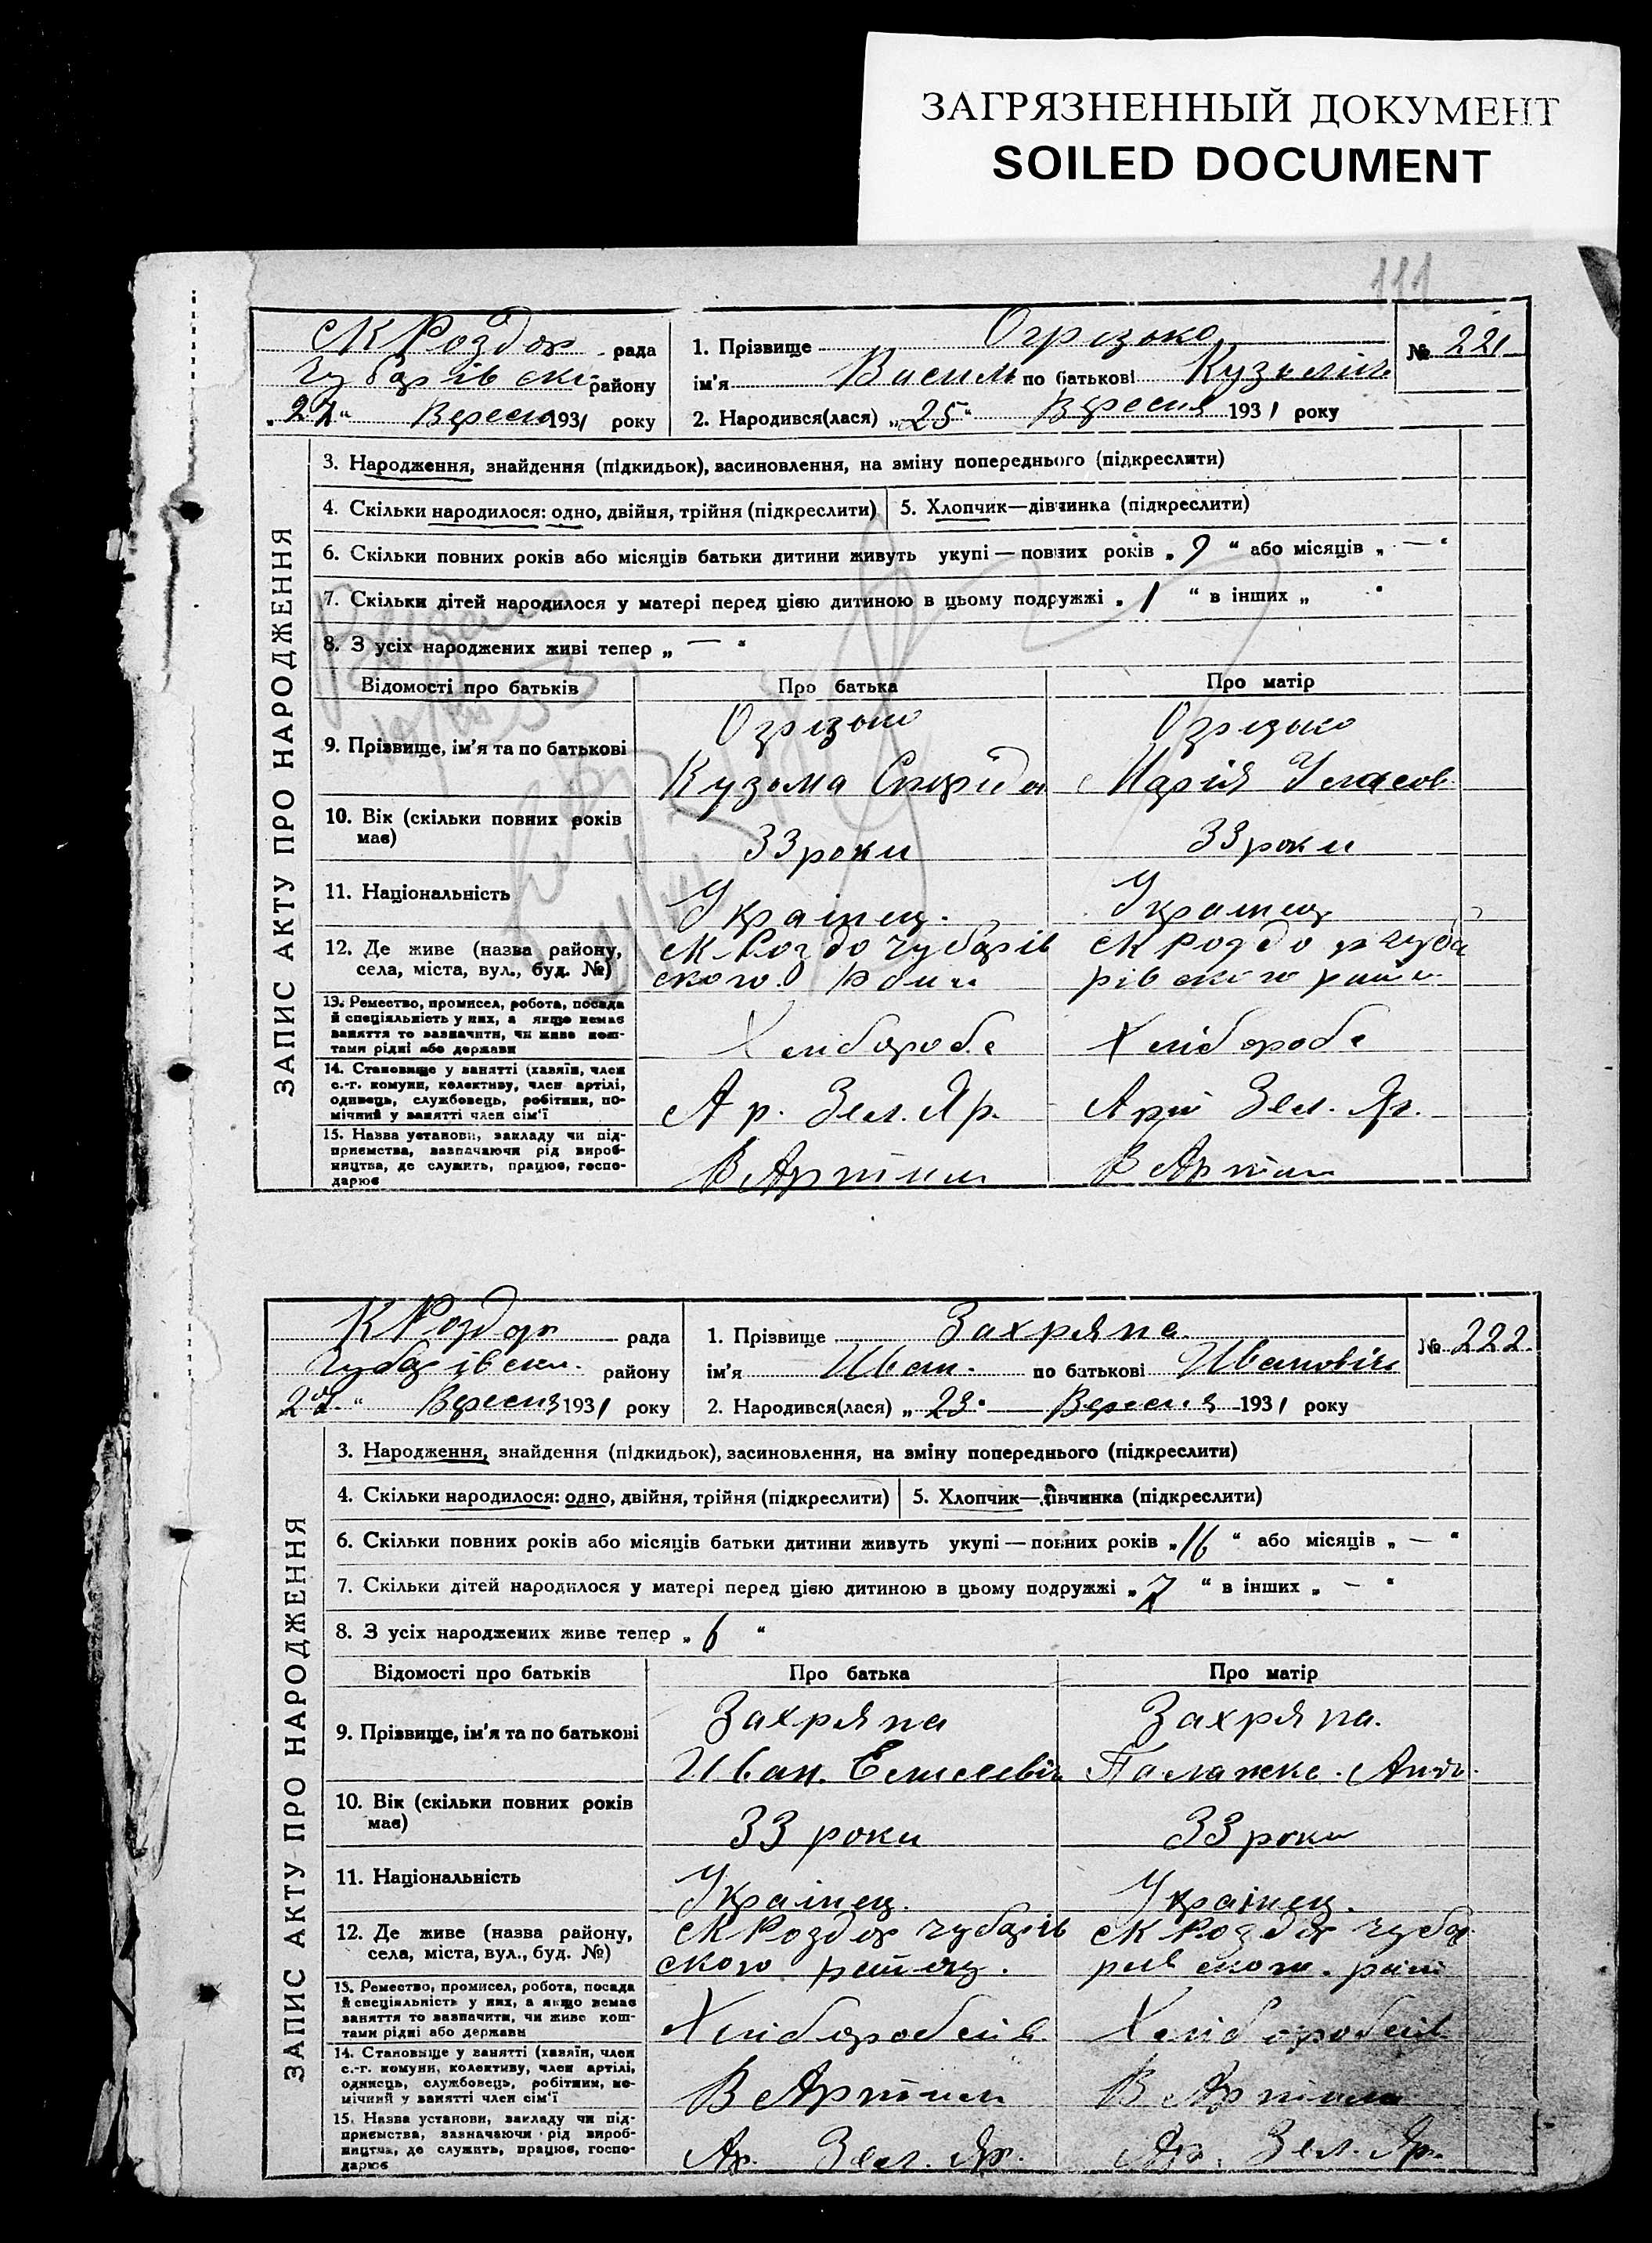 ЗАГРЯЗНЕННЫЙ ДОКУМЕНТ
SOILED DOCUMENT
111
рада
району
"27" 1931 року
1. Прізвище Огрізько
ім'я Василь по батькові Кузьміч
2. Народився(лася) „25" Вересня 1931 року
№ 221
ЗАПИС АКТУ ПРО НАРОДЖЕННЯ
3. Народження, знайдення (підкидьок), васиновлення, на зміну попереднього (підкреслити)
4. Скільки народилося: одно, двійня, трійня (підкреслити)
5. Хлопчик—дівчинка (підкреслити)
6. Скільки повних років або місяців батьки дитини живуть укупі — повних років „9" або місяців „—"
7. Скільки дітей народилося у матері перед цією дитиною в цьому подружжі „1" в інших „ "
8. З усіх народжених живі тепер „—"
Відомості про батьків Про батька Про матір
9. Прізвище, ім'я та по батькові
Огрізько Огрізько
Кузьма Марія
10. Вік (скільки повних років має)
33 роки 33 роки
11. Національність
Українец. Українец
12. Де живе (назва району, села, міста, вул., буд. №)
13. Ремество, промисел, робота, посада й спеціяльність у них, а якщо немає заняття то зазначити, чи живе коштами рідні або держави
Хлібороб Хлібороб
14. Становище у занятті (хазяїн, член с.-г. комуни, колективу, член артілі, одинець, службовець, робітник, помічний у занятті член сім'ї
Ар. Зел. Яр. Зел. Яр.
15. Назва установи, закладу чи підприємства, зазначаючи рід виробництва, де служить, працює, господарює
В Артили В Артили
рада
району
Вересня 1931 року
1. Прізвище Захряпа
ім'я Иван. по батькові Ивановіч
2. Народився(лася) „23" Вересня 1931 року
№ 222.
ЗАПИС АКТУ ПРО НАРОДЖЕННЯ
3. Народження, знайдення (підкидьок), засиновлення, на зміну попереднього (підкреслити)
4. Скільки народилося: одно, двійня, трійня (підкреслити)
5. Хлопчик—дівчинка (підкреслити)
6. Скільки повних років або місяців батьки дитини живуть укупі — повних років „16" або місяців „—"
7. Скільки дітей народилося у матері перед цією дитиною в цьому подружжі „7" в інших „—"
8. З усіх народжених живе тепер „6"
Відомості про батьків Про батька Про матір
9. Прізвище, ім'я та по батькові
Захряпа Захряпа.
Иван. Елисеевіч
10. Вік (скільки повних років має)
33 роки 33 роки
11. Національність
Українец. Українец.
12. Де живе (назва району, села, міста, вул., буд. №)
13. Ремество, промисел, робота, посада й спеціяльність у них, а якщо немає заняття то зазначити, чи живе коштами рідні або держави
14. Становище у занятті (хазяїн, член с.-г. комуни, колективу, член артілі, одинець, службовець, робітник, помічний у занятті член сім'ї
В Артили В Артили
15. Назва установи, закладу чи підприємства, зазначаючи рід виробництва, де служить, працює, господарює
Ар. Зел. Яр. Ар. Зел. Яр.